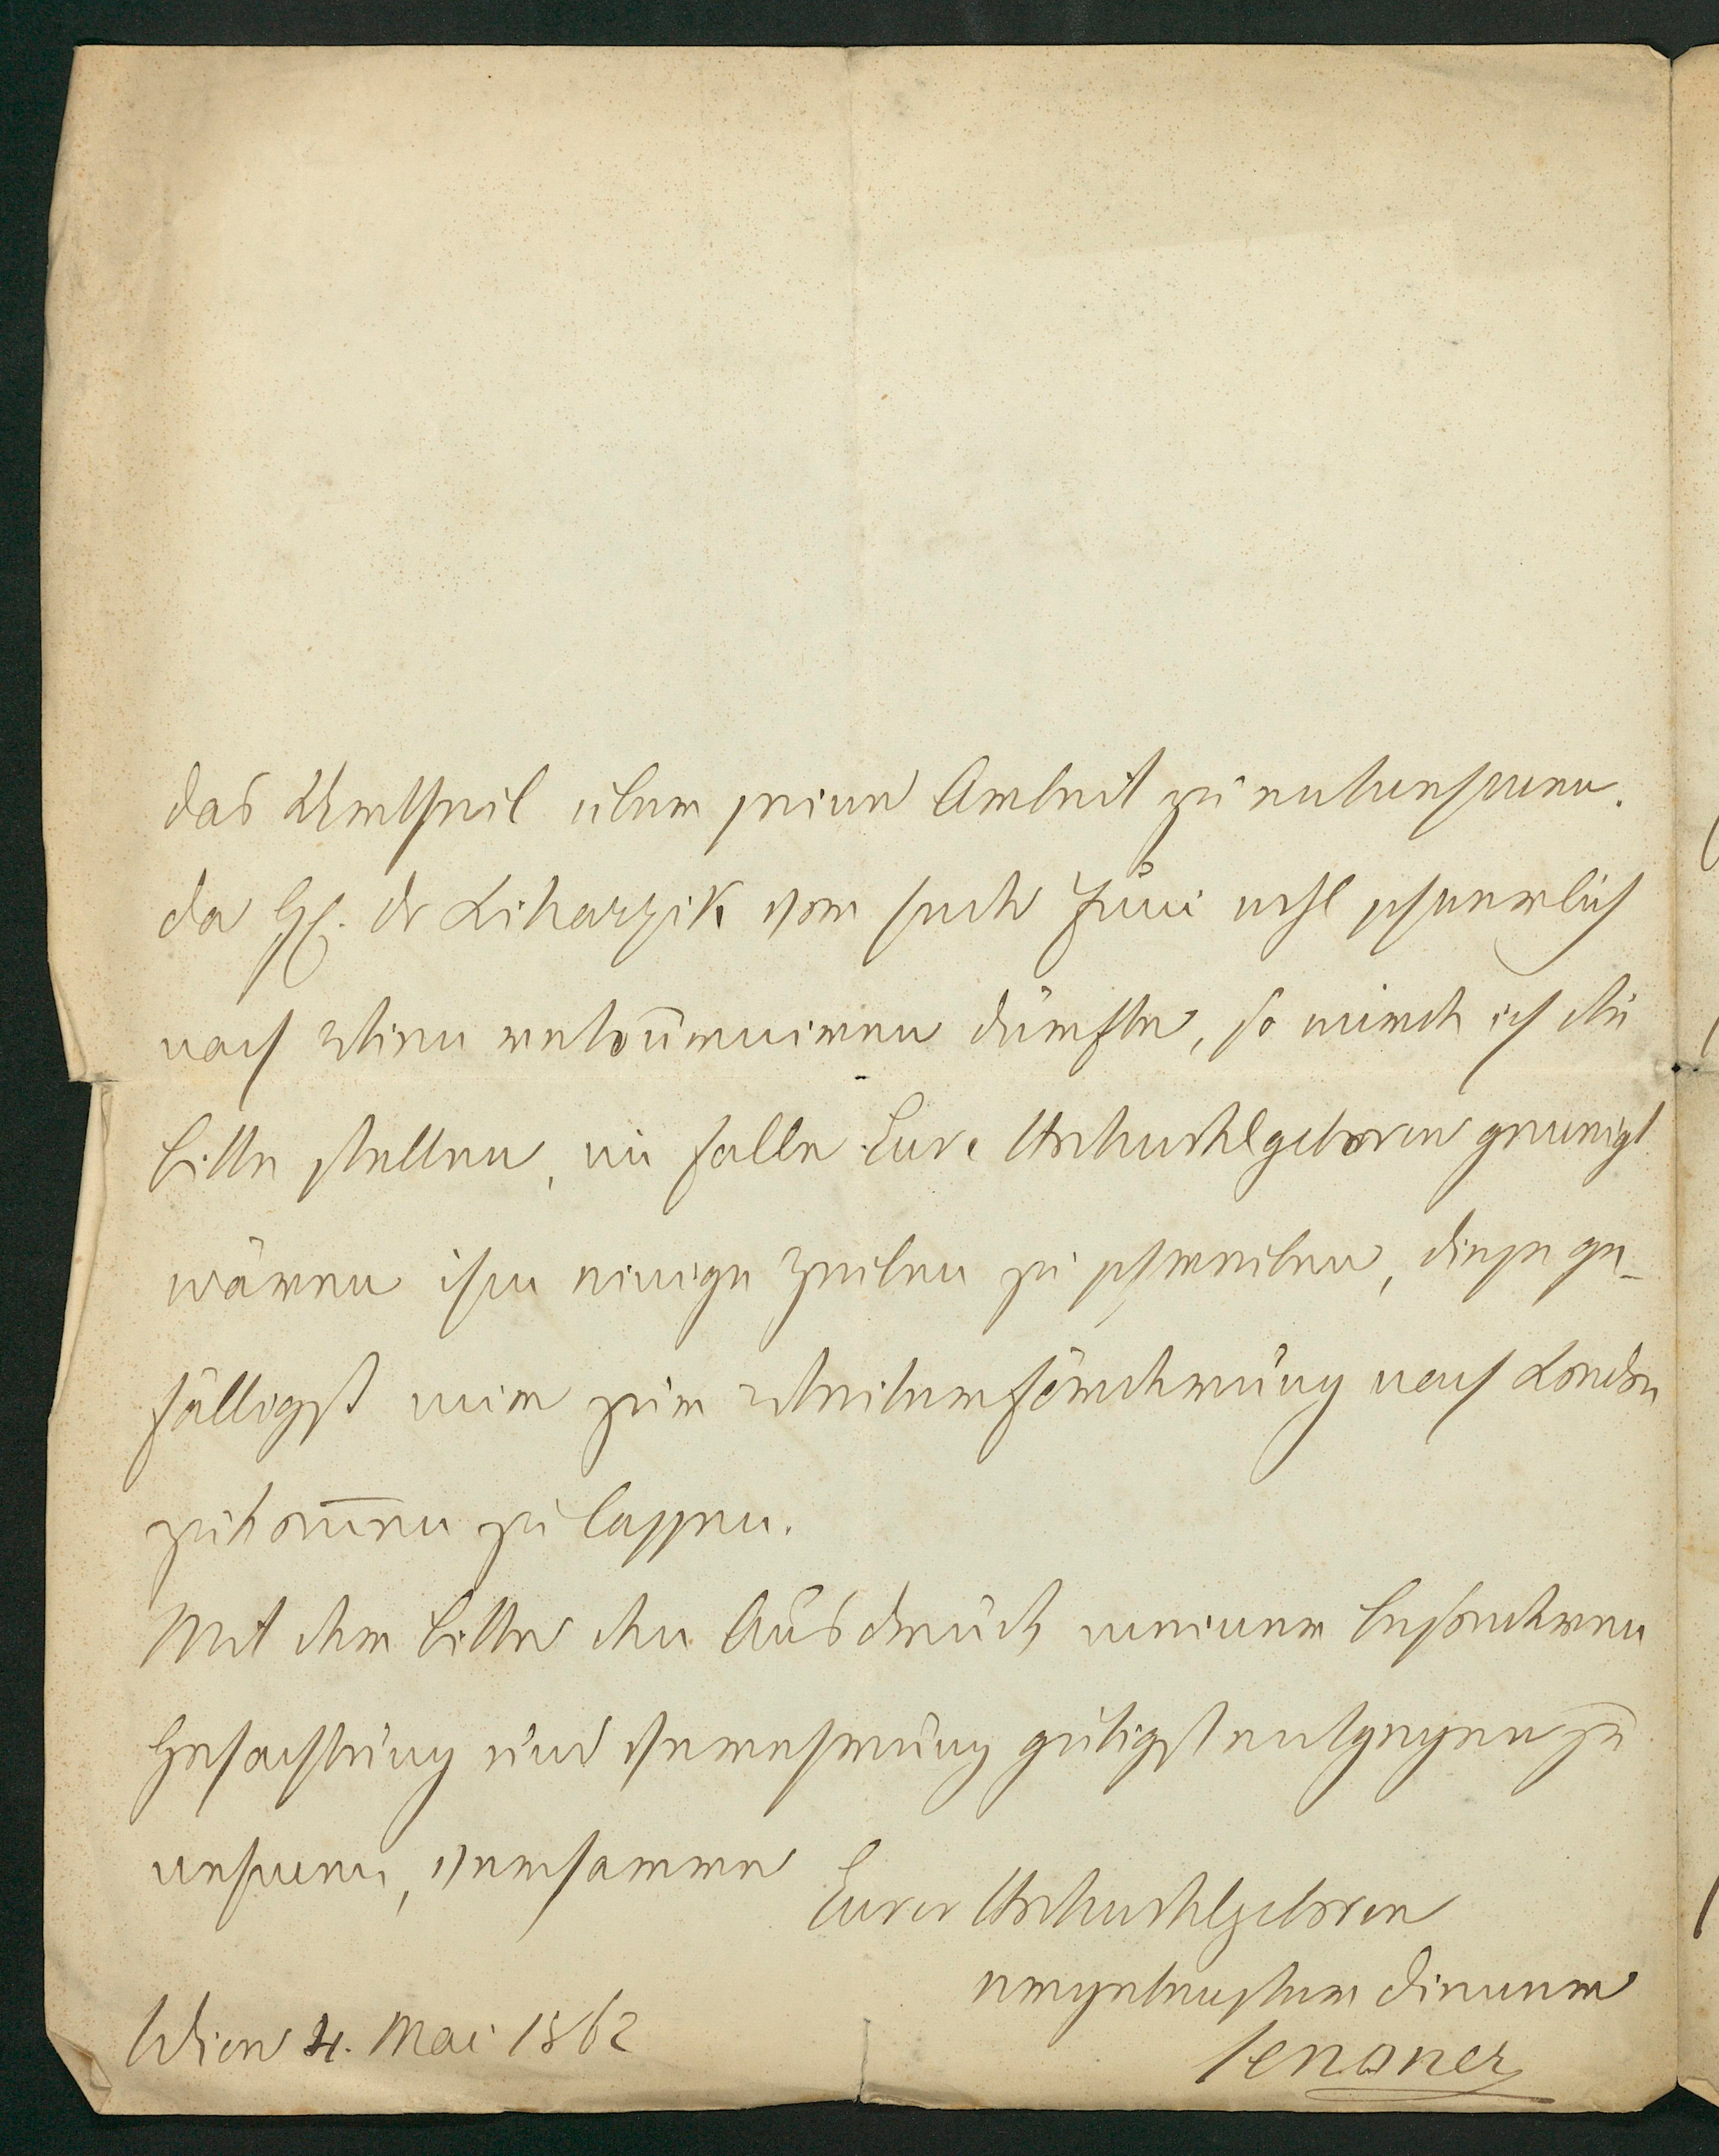 das Urtheil über seine Arbeit zu entnehmen.
da H. Dr Liharzik vor Ende Juni wohl schwerlich
nach Wien retourniren dürfte, so würde ich die
Bitte stellen, im Falle Eure Hochwohlgeboren geneigt
wären ihm einige Zeilen zu schreiben, diese ge-
fälligst mir zur Weiterbeförderung nach London
zukom̄en zu lassen.
Mit der Bitte den Ausdruck meiner besonderen
Hochachtung und Verehrung gütigst entgegen zu
nehmen, verharre
Eurer Hochwohlgeboren
ergebenster Diener
Senoner
Wien 4. Mai 1862